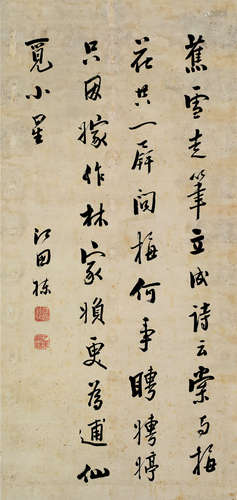 蕉雪走筆立成詩云棠与梅
花共一屏问梅何事聘娉婷
只因嫁作林家婦更为逋仙
覓小星
江国棟